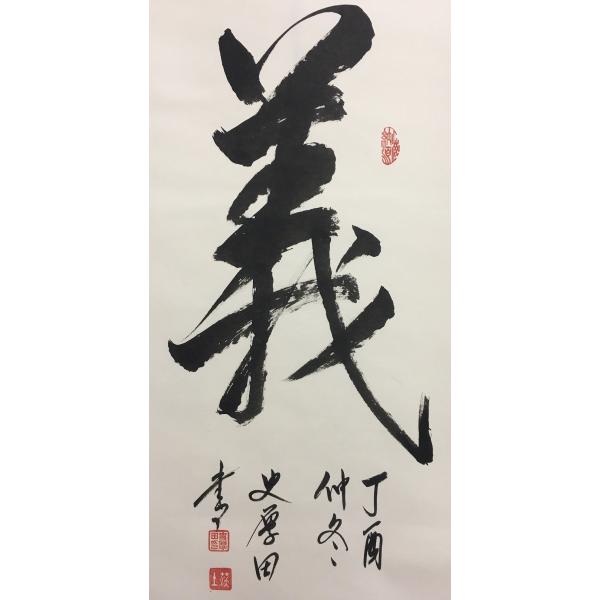 義
丁酉
仲冬
史厚田
書